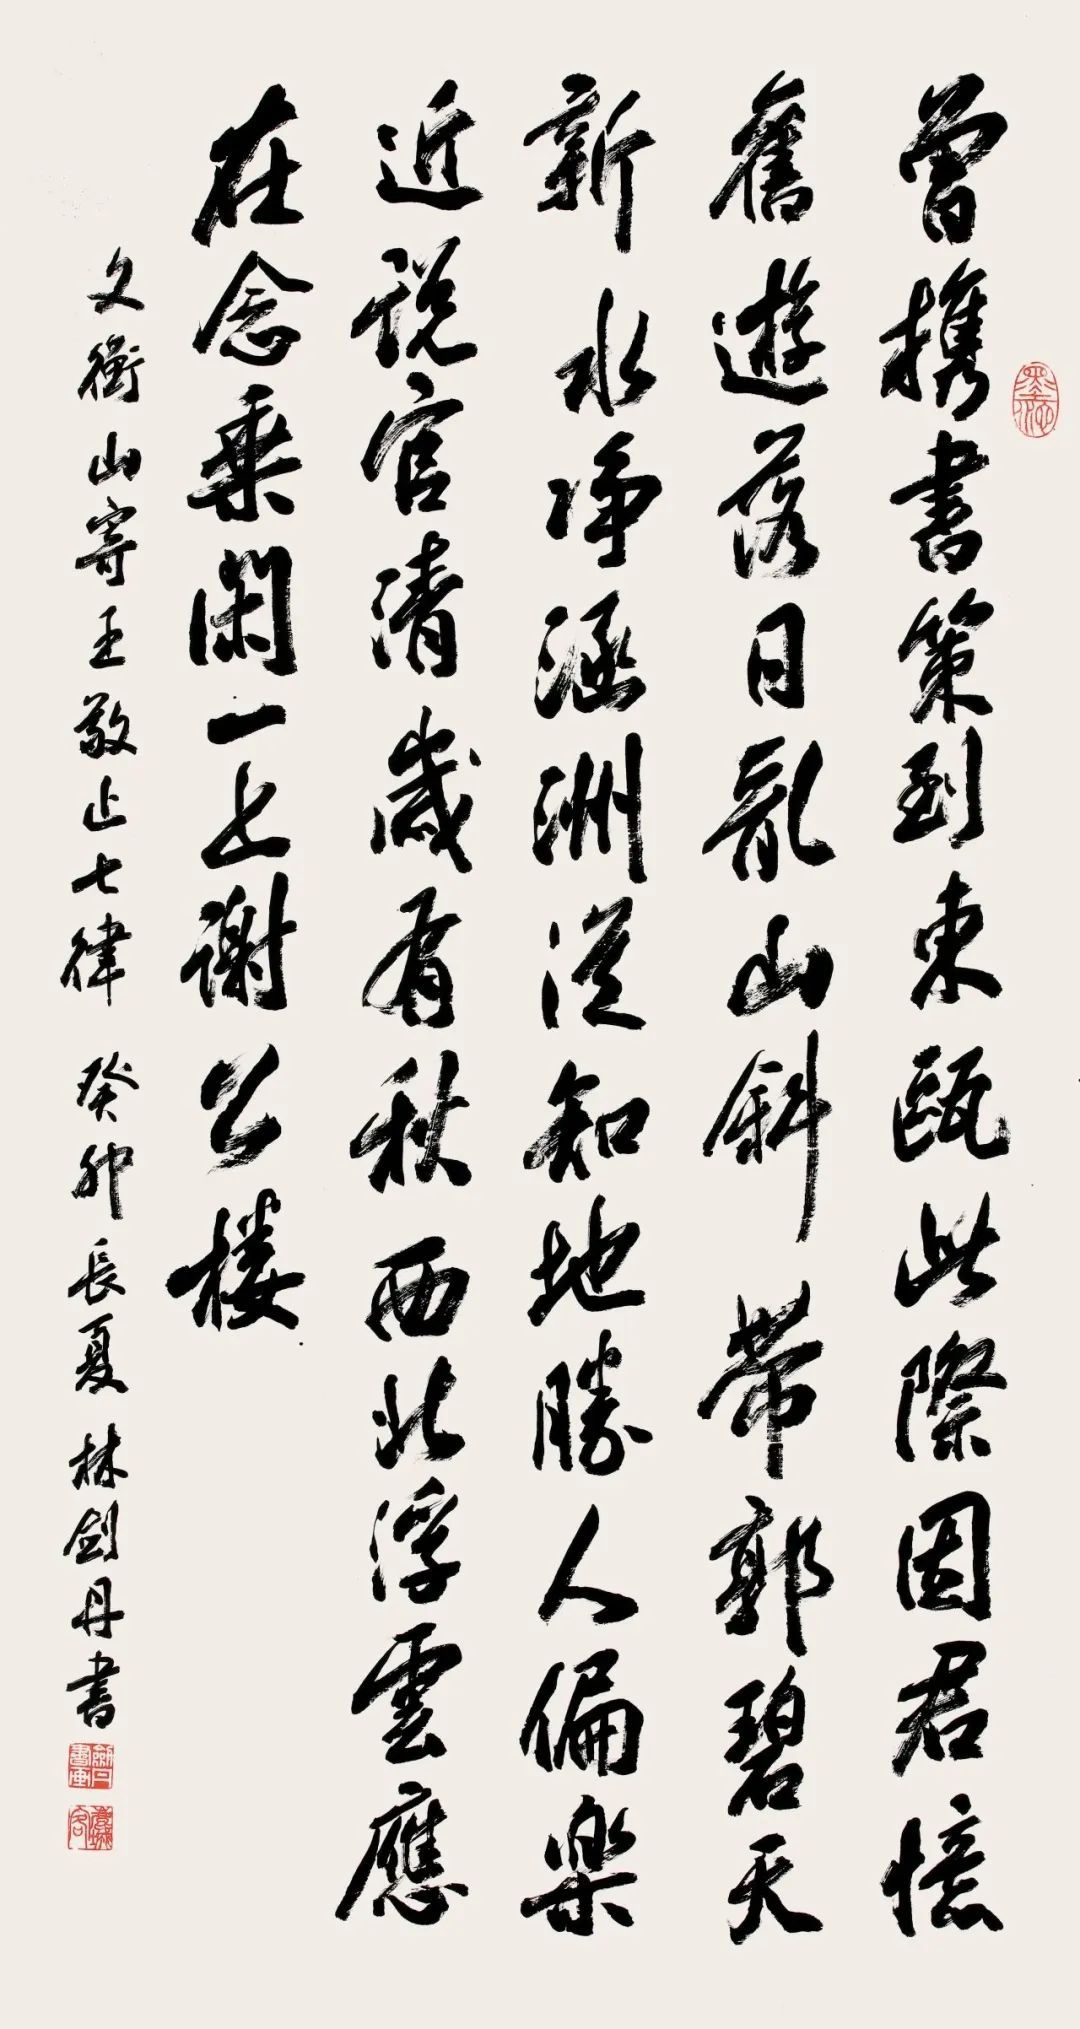 曾携書策到東甌此際因君憶
舊遊落日亂山斜帶郭碧天
新水净涵洲從知地勝人偏樂
近説官清歲有秋西北浮雲應
在念乘閑一上謝公樓
文衡山寄王敬止七律 癸卯長夏林劍丹書